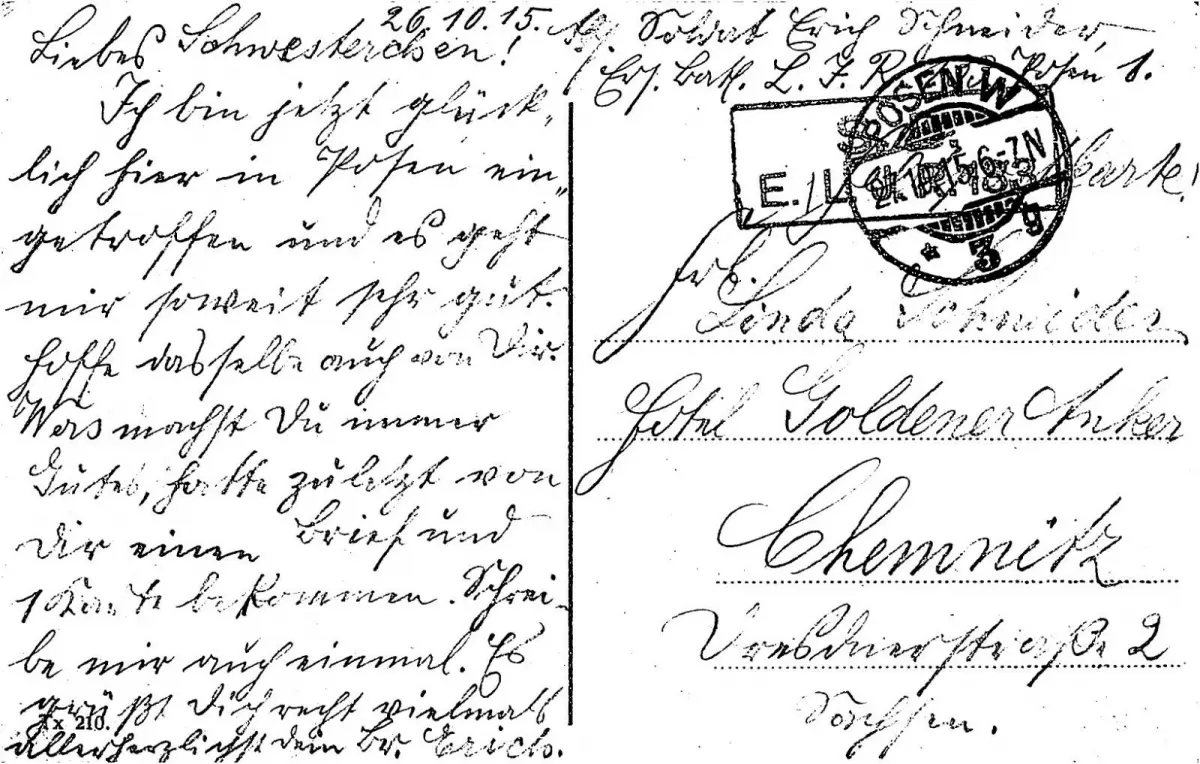 26.10.15.
Liebes Schwesterchen!
Ich bin jetzt glück-
lich hier in Posen ein-
getroffen und es geht
mir soweit sehr gut.
hoffe dasselbe auch von Dir.
Was machst Du immer
Gutes, hatte zuletzt von
Dir einen Brief und
1 Karte bekommen. Schrei-
be mir auch einmal. Es
grüßt Dich recht vielmals
allerherzlichst dein Br. Erich.
Tx 210.
Soldat Erich Schneider,
Ers. Batl. L. I. R. Posen 1.
POSEN W
6-7N
* 3 g
E. L. I. R. 183
Frl.
Linda Schneider
Hotel Goldener Anker
Chemnitz
Dresdnerstraße 2
Sachsen.